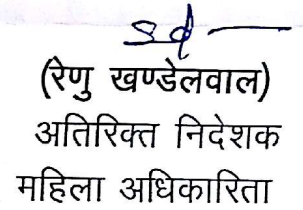 Sd —
(रेणु खण्डेलवाल)
अतिरिक्त निदेशक
महिला अधिकारिता